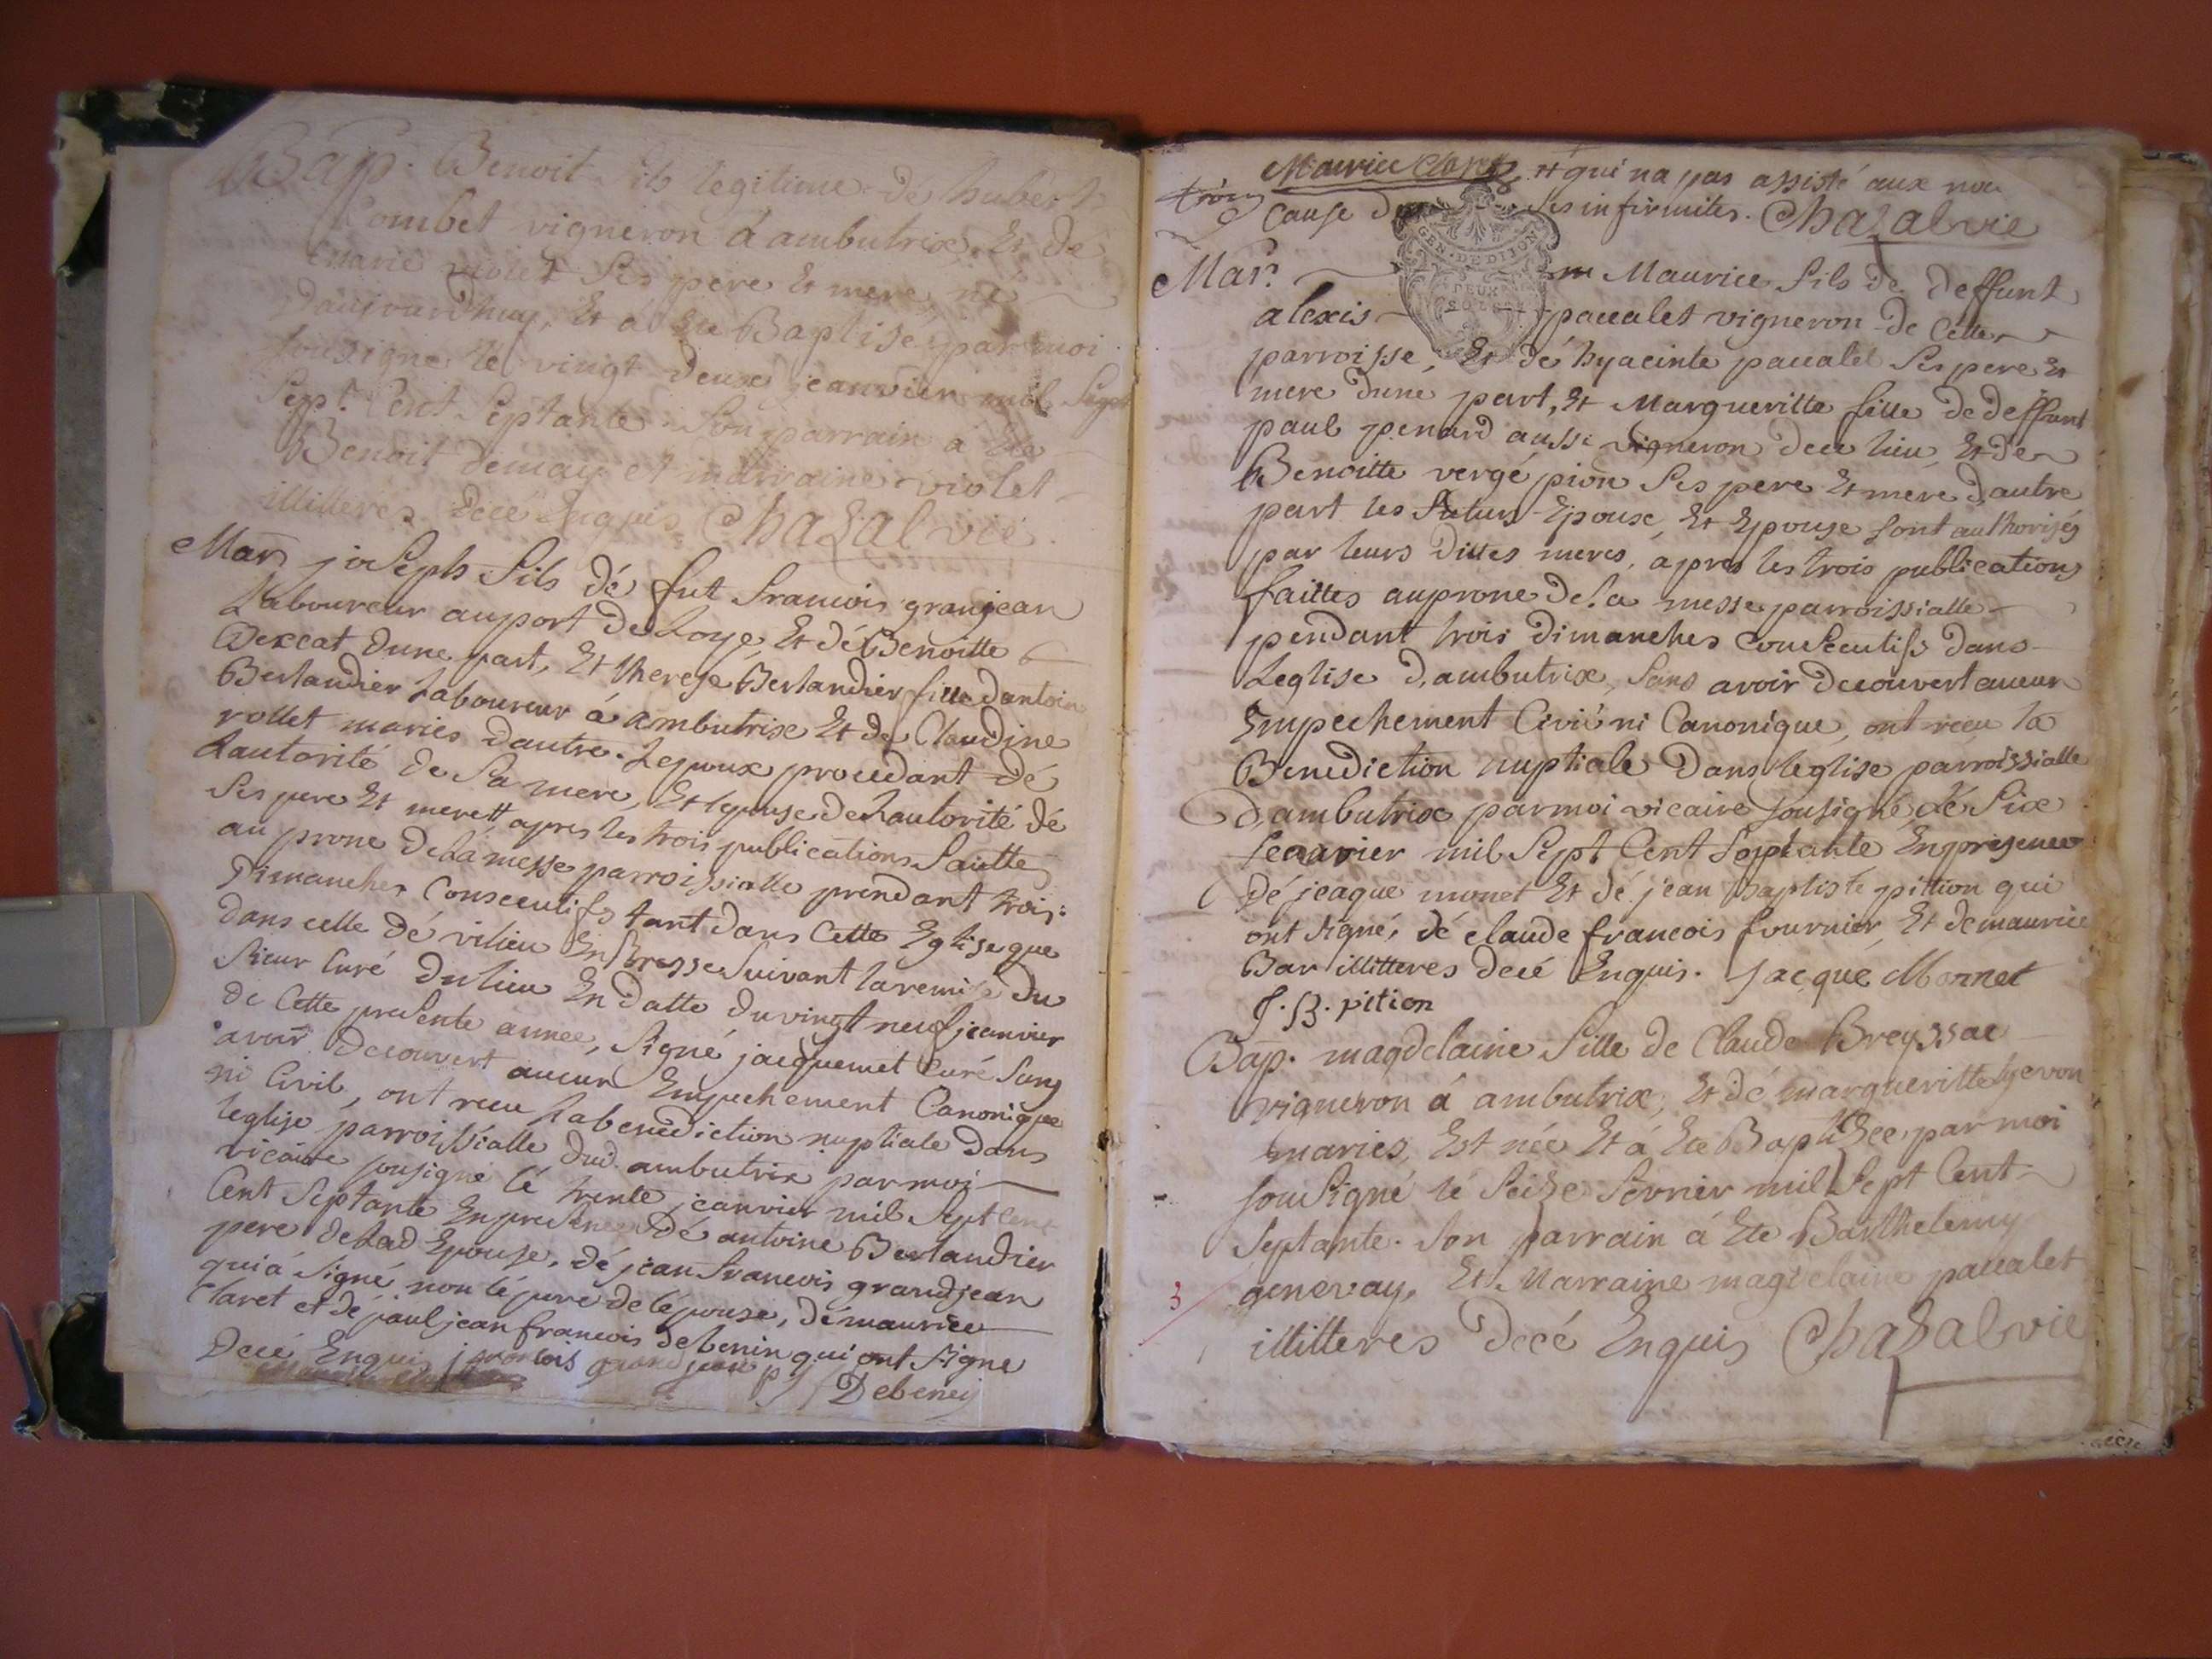 Bap. Benoit fils legitime de hubert
Combet vigneron á ambutrix, Et dé
marie violet Ses pere Et mere, né
Daujourdhuy, Et á Ete Baptise par moi
Sousigné le vingt deux jeanvier mil Sept
Sept Cent Septante Son parrain á Ete
Benoit demay et marraine violet
illitteres decé Enquis Chazalvie
Mar joseph fils dé fut francois granjean
Laboureur auport de Loye, Et dé Benoitte
Dexcat dune part, Et therese Berlandier fille dantoine
Berlandier Laboureur á ambutrix Et de Claudine
rollet mariés dautre. Lepoux procedant dé
Lautorité de Sa mere, Et lepouse de Lautorité dé
Ses pere Et mere apres les trois publications faitte
au prone de Lámesse parroissialle prendant trois
Dimanches Consecutifs tant dans Cette Eglise que
dans celle dé vilieu En Bresse Suivant laremise Du
Sieur Curé Du lieu En datte du vingt neuf jeanvier
de Cette presente année, Signé jacquemet Curé Sans
avoir decouvert aucun Empechement Canonique
ni Civil, ont receu La benediction nuptiale Dans
leglise parroissialle dud. ambutrix par moi
vicaire sousigné lé trente jeanvier mil Sept Cent
Cent Septante En presence dé antoine Berlandier
pere de Lad Epouse, dé jean francois grandjean
qui á signé non lé pere de lépouse, dé maurice
Claret et dé paul jean francois debenin qui ont signe
Decé Enquis francois grand jean Debeney
Maurice, Et qui na pas assisté aux
cause de Ses infirmites. Chazalvie
GEN. DE DIJON
DEUX
SOLS
Mar. Maurice fils de deffunt
alexis paccalet vigneron de Cette
parroisse, Et dé hyacinte paccalet Ses pere Et
mere Dune part, Et Margueritte fille de deffunt
paul penard aussi vigneron dece lieu, Et dé
Benoitte vergé pion Ses pere Et mere d,autre
part les futurs Epoux, Et Epouse sont authorisés
par leurs dittes meres, apres les trois publications
faittes auprone de La messe parroissialle
pendant trois dimanches Consecutifs dans
Leglise d,ambutrix, Sans avoir decouvert aucun
Empechement Civil ni Canonique, ont receu la
Benediction nuptiale Dans leglise parroissialle
d,ambutrix par moi vicaire sousigné, lé Six
feavrier mil Sept Cent Septante En presence
dé jeaque monet Et dé jean baptiste pittion qui
ont signé, dé claude francois fournier, Et de maurice
Bar illitteres decé Enquis. Jacque Monnet
J. B. pition
Bap. magdelaine fille de Claude Breyssac
vigneron á ambutrix, Et dé margueritte
mariés, Est née Et á Ete Baptisee, par moi
sousigné lé Seize fevrier mil Sept Cent
Septante. Son parrain á Ete Barthelemy
genevay, Et Marraine magdelaine paccalet
3
illitteres decé Enquis Chazalvie